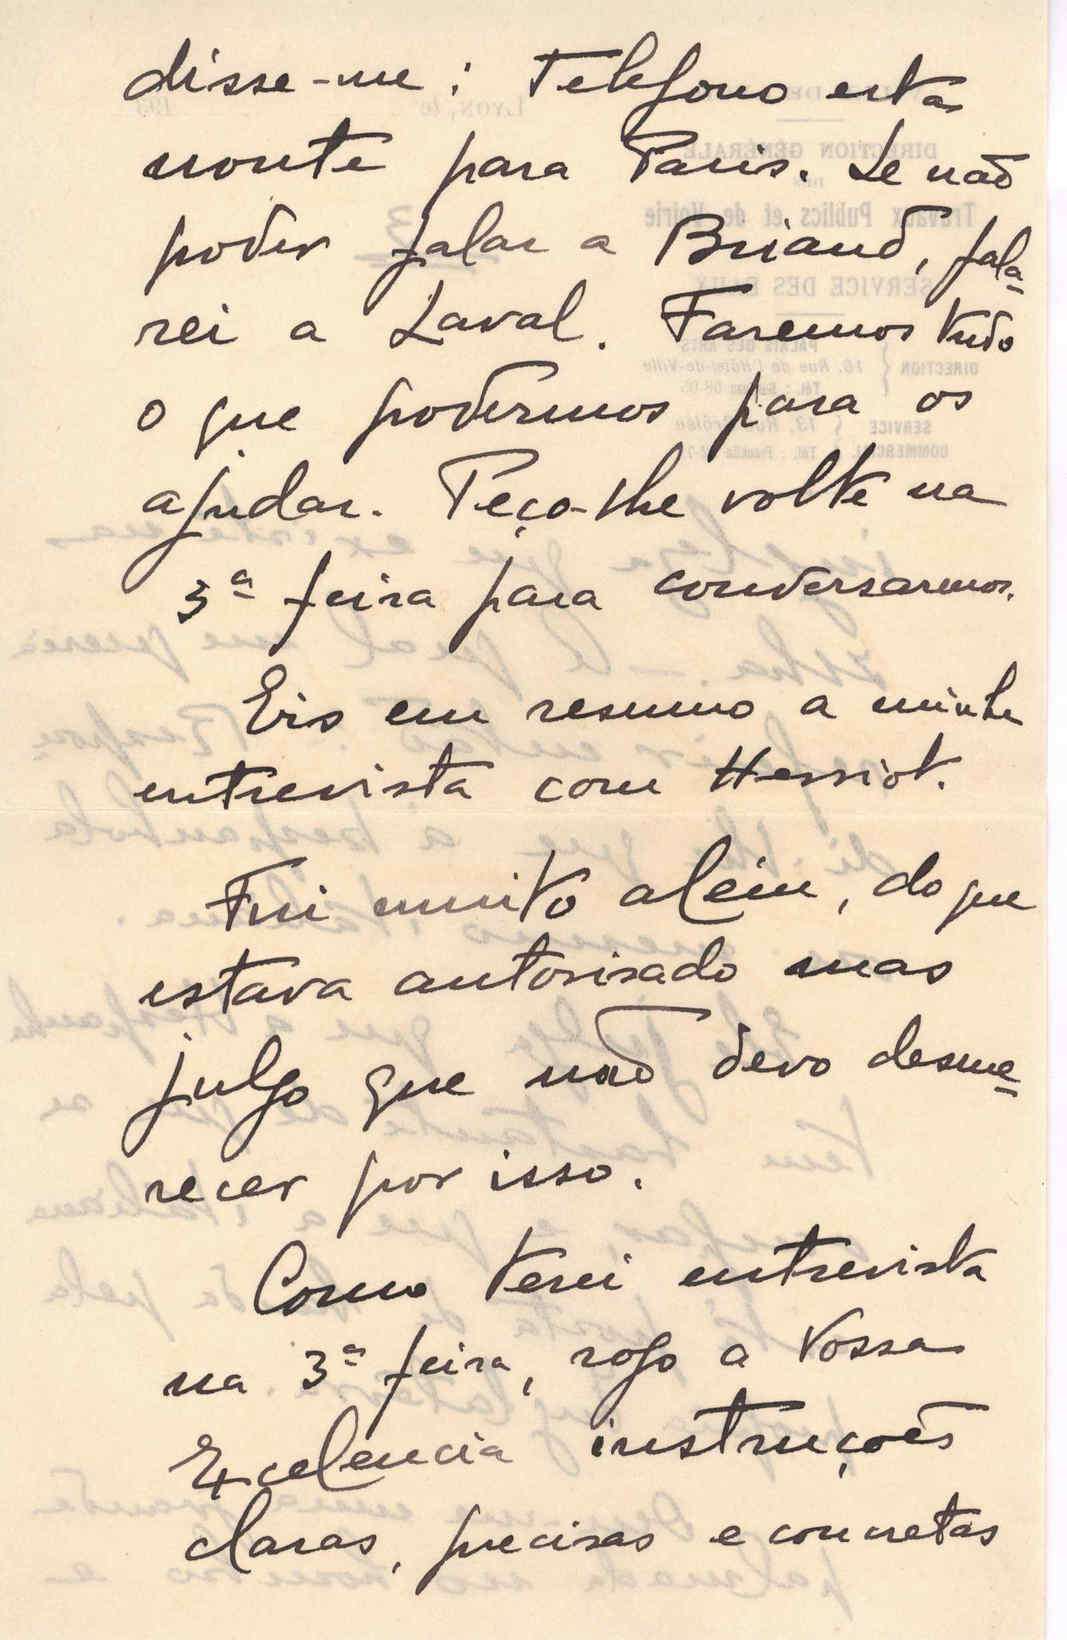 disse-me: Telefono esta
noute para Paris. Se não
poder falar a Briand, fala-
rei a Laval. Faremos tudo
o que podermos para os
ajudar. Peço-lhe volte na
3ª feira para conversarmos.
Eis em resumo a minha
entrevista com Herriot.
Fui muito alem, do que
estava autorisado mas
julgo que não devo desme-
recer por isso.
Como terei entrevista
na 3ª feira, rogo a Vossa
Excelencia instruções
claras, precisas e concretas